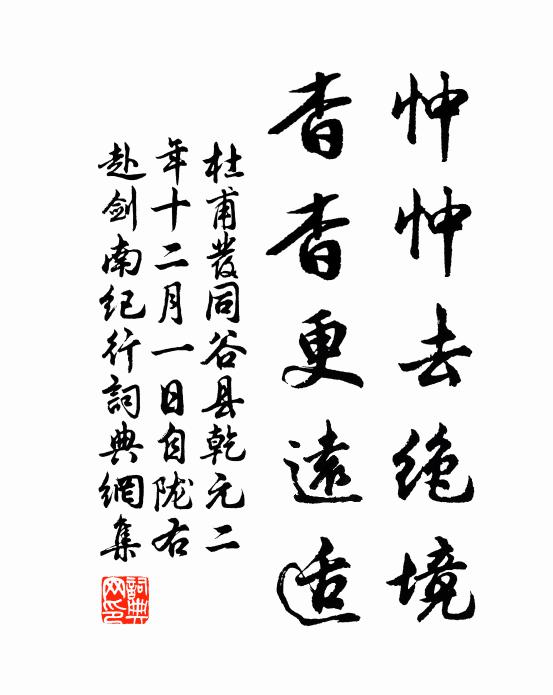 忡忡去绝境
杳杳更遠适
杜甫發同谷县乾元二
年十二月一日自陇右
赴剑南纪行詞典網集
詞典网印